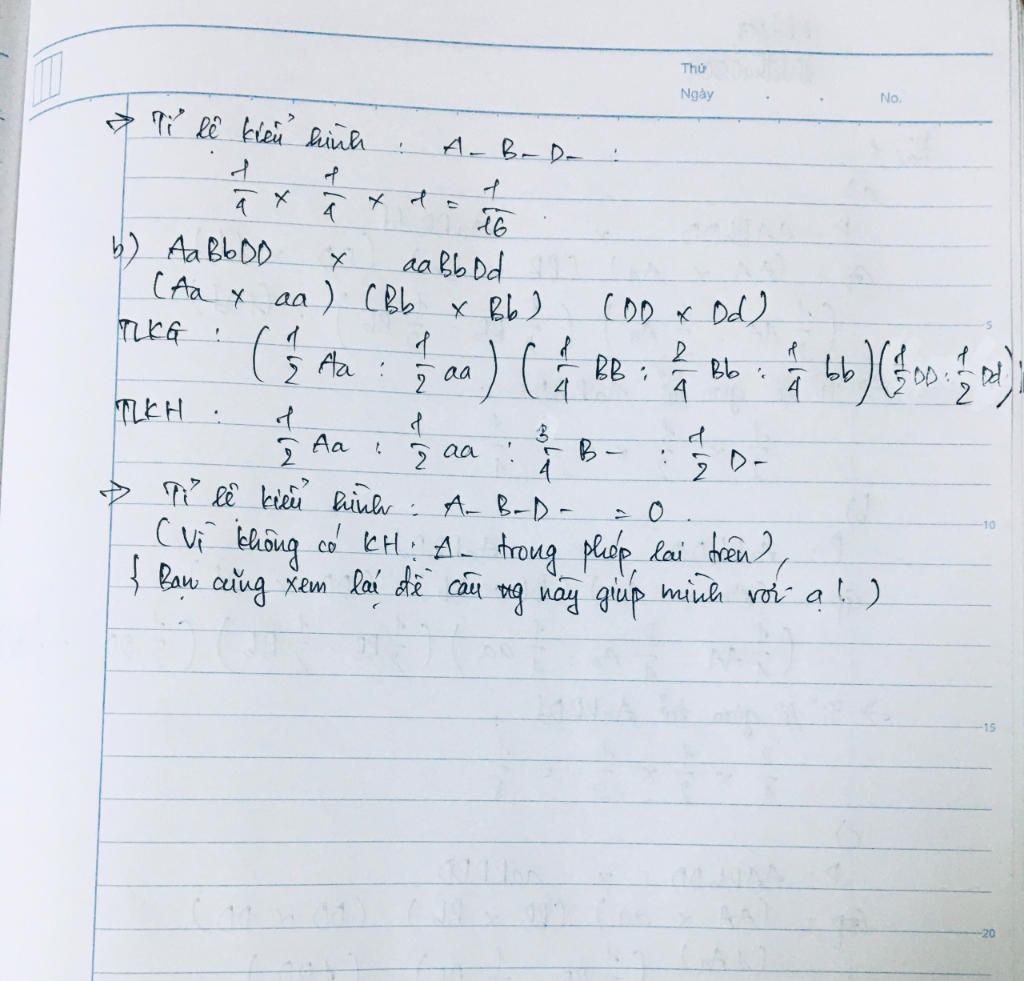 Thứ
Ngày . . No.
=> Tỉ lệ kiểu hình : A- B- D- :
1/4 x 1/4 x 1 = 1/16 .
b) AaBbDD x aaBbDd
(Aa x aa) (Bb x Bb) (DD x Dd)
5
TLKG : (1/2 Aa : 1/2 aa) (1/4 BB : 2/4 Bb : 1/4 bb)(1/2 DD : 1/2 Dd)
TLKH : 1/2 Aa : 1/2 aa : 3/4 B- : 1/2 D-
=> Tỉ lệ kiểu hình : A- B- D- = 0 .
10
(Vì không có KH : A- trong phép lai trên),
{ Bạn cũng xem lại đề câu này giúp mình với ạ ! )
15
20